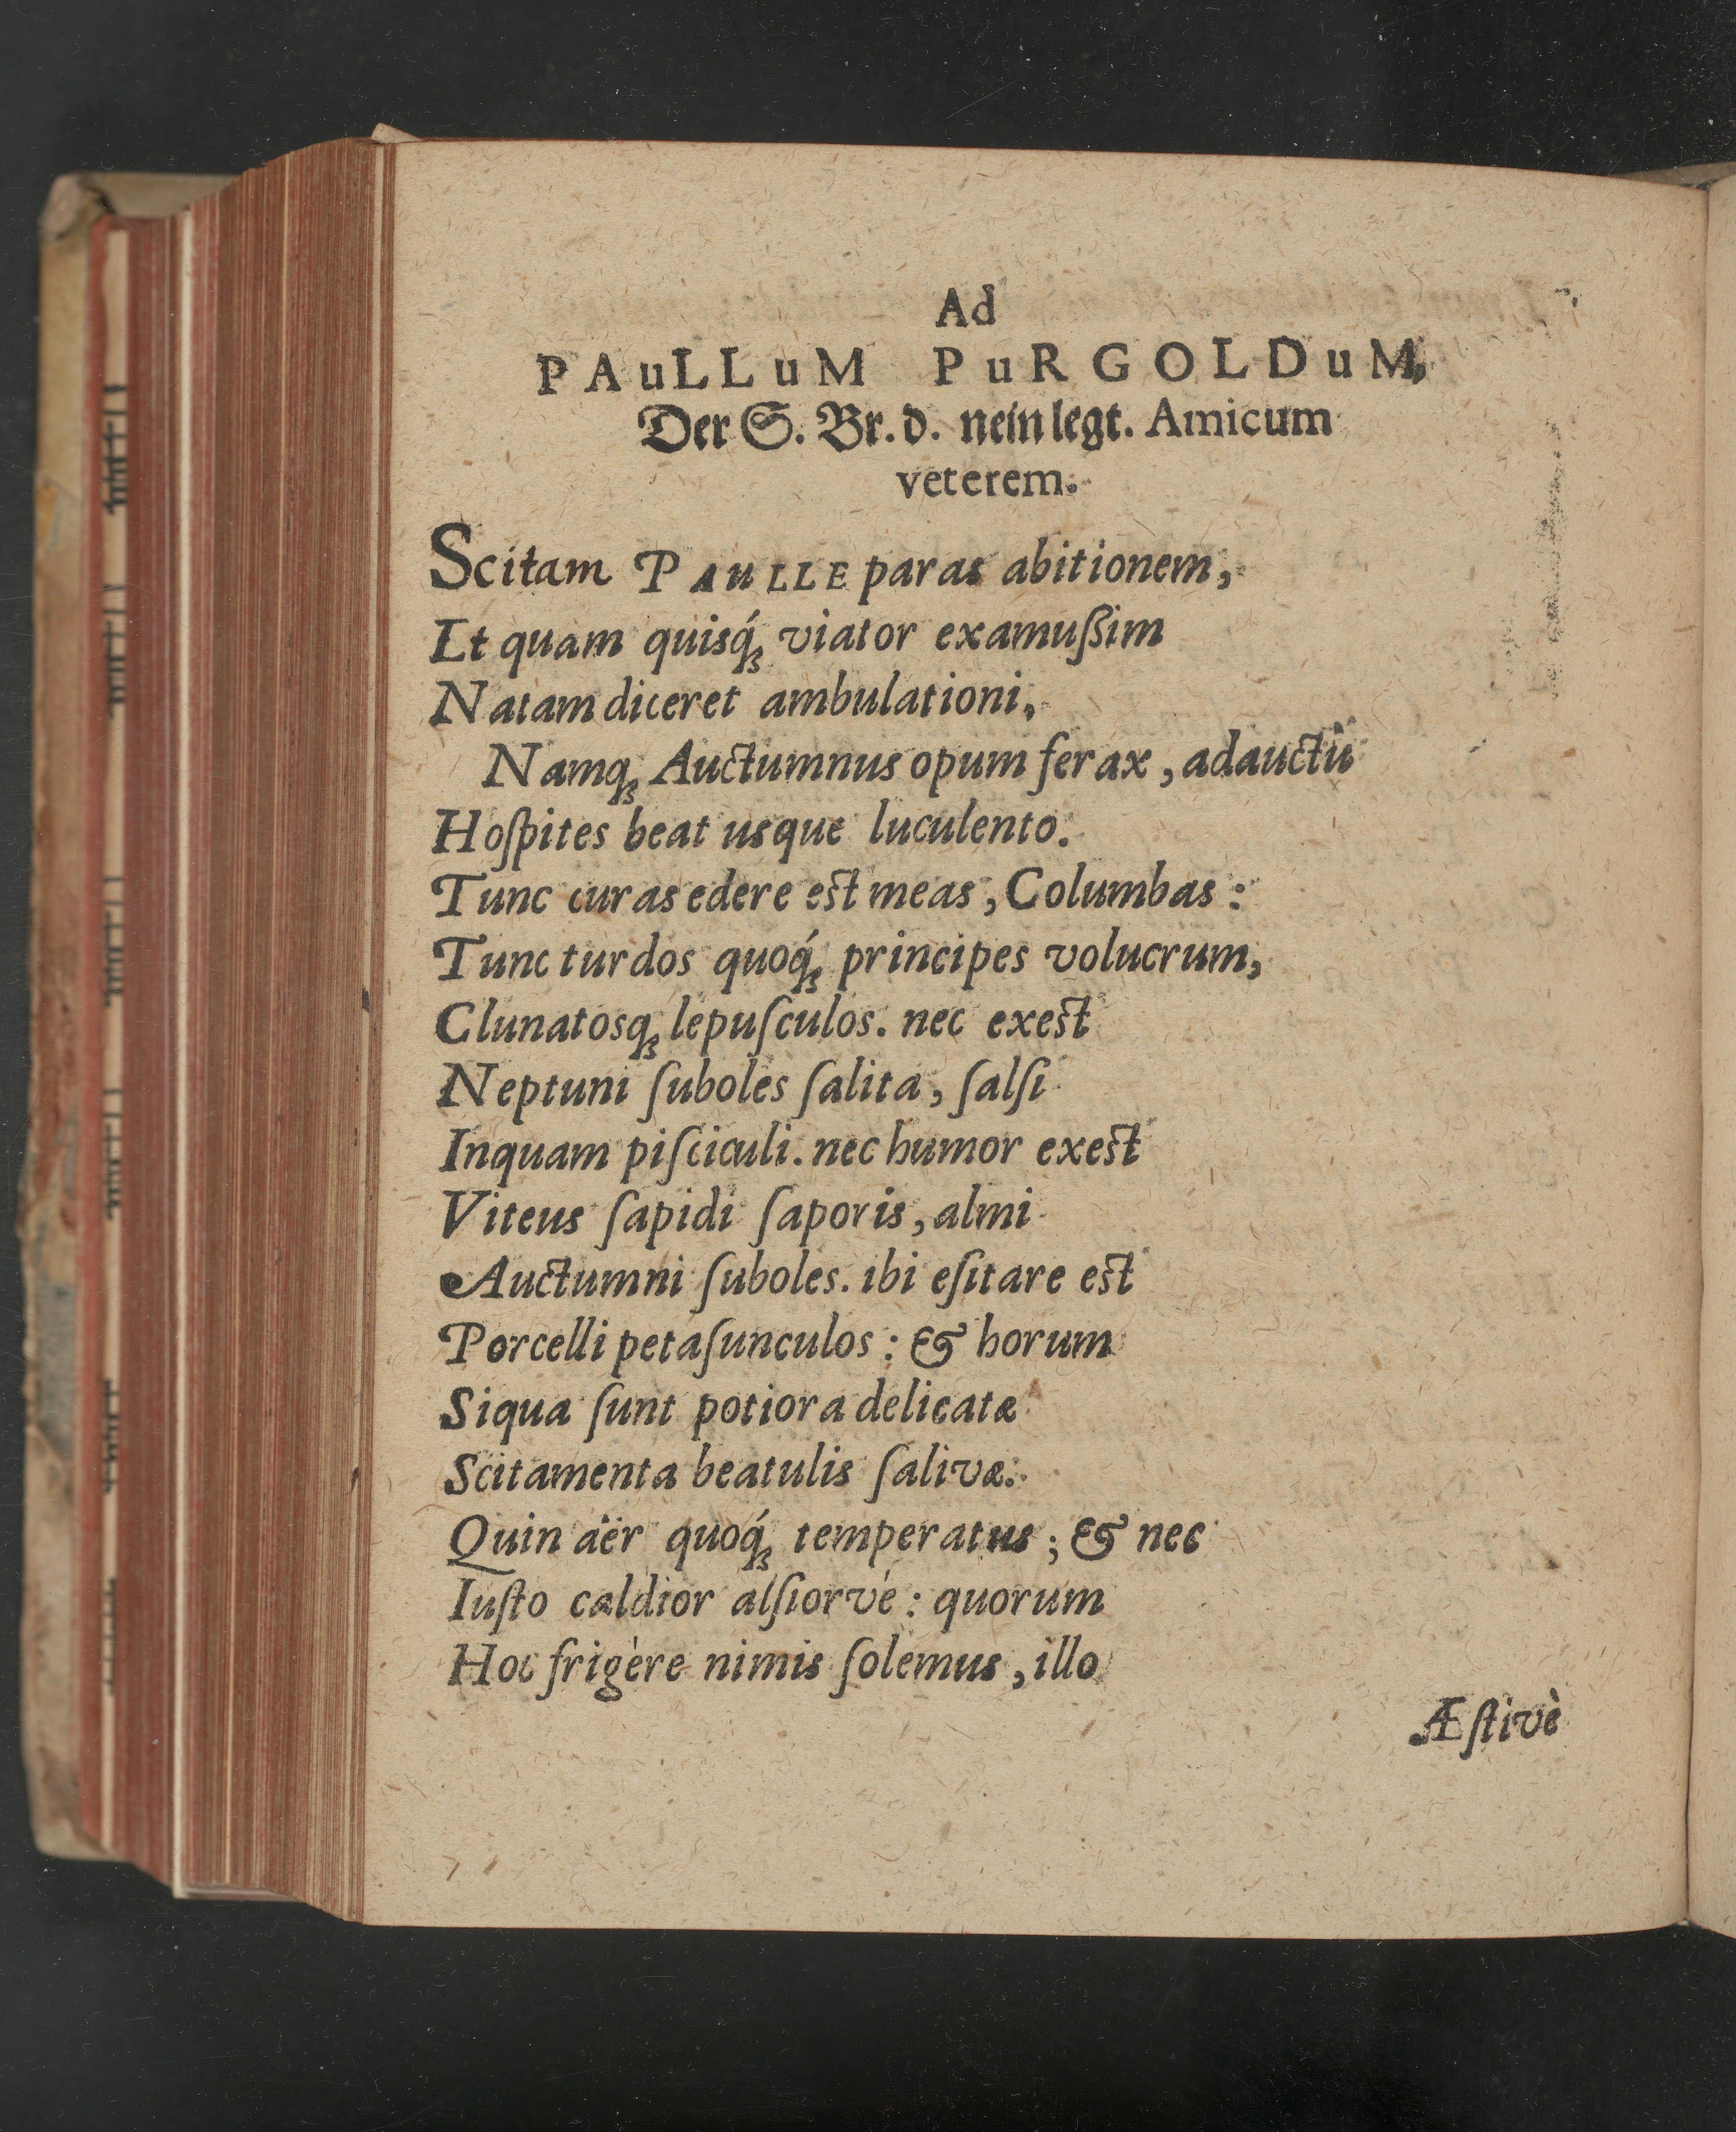 Ad
PAuLLuM PuRGOLDuM,
Der S. Br. d. nein legt. Amicum
veterem.
Scitam PAuLLE paras abitionem,
Et quam quisq́ꝫ viator examuſſim
Natam diceret ambulationi,
Namqꝫ Auctumnus opum ferax, adauctu
Hoſpites beat usque luculento.
Tunc curas edere est meas, Columbas:
Tunc turdos quoq́ꝫ principes volucrum,
Clunatosqꝫ lepuſculos. nec exest
Neptuni ſuboles ſalita, ſalſi
Inquam piſciculi. nec humor exest
Viteus ſapidi ſaporis, almi
Auctumni ſuboles. ibi eſitare est
Porcelli petaſunculos: & horum
Siqua ſunt potiora delicatæ
Scitamenta beatulis ſalivæ.
Quin aër quoq́ꝫ temperatus; & nec
Iuſto caldior alſiorvé: quorum
Hoc frigère nimis ſolemus, illo
Æſtivè